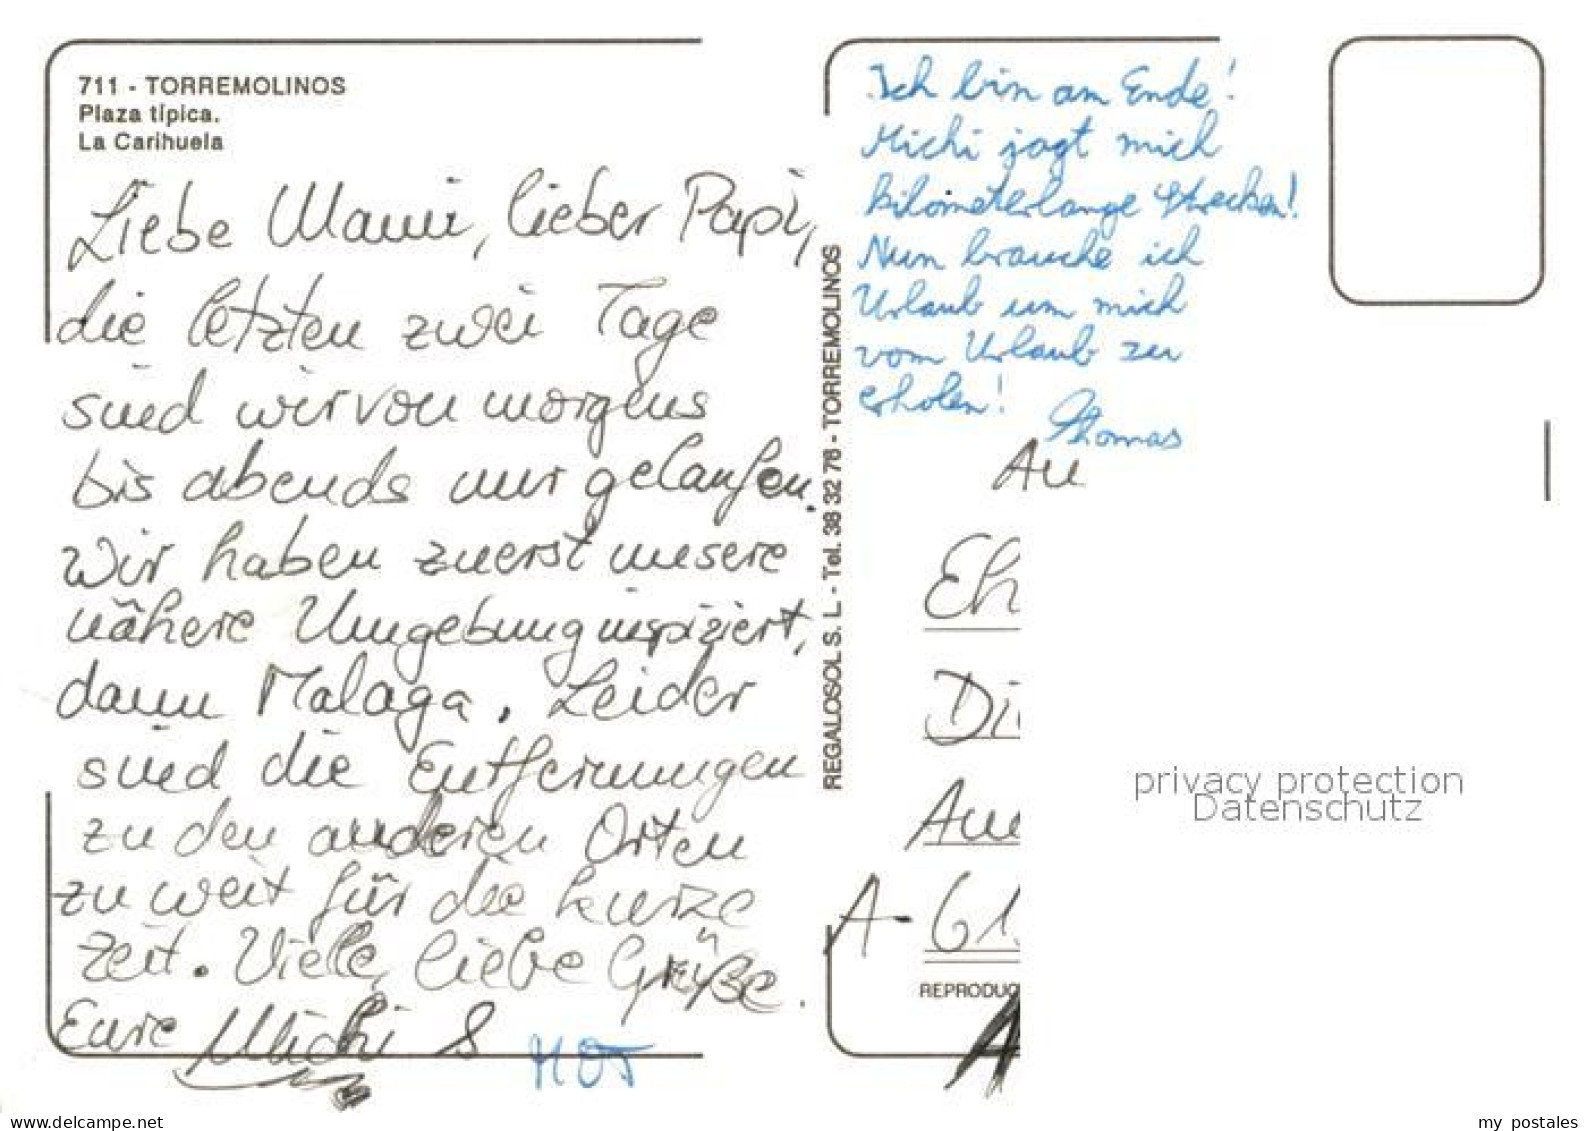 711 - TORREMOLINOS
Plaza típica.
La Carihuela
Liebe Mami, lieber Papi,
die letzten zwei Tage
sind wir von morgens
bis abends nur gelaufen.
Wir haben zuerst unsere
nähere Umgebung inspiziert,
dann Malaga. Leider
sind die Entfernungen
zu den anderen Orten
zu weit für die kurze
Zeit. Viele, liebe Grüße.
Eure Michi &
REGALOSOL S. L. - Tel. 38 32 76 - TORREMOLINOS
Ich bin am Ende!
Michi jagt mich
kilometerlange Strecken!
Nun brauche ich
Urlaub um mich
vom Urlaub zu
erholen!
Thomas
An
Eh
Di
A-61
REPRODUC
privacy protection
Datenschutz
delcampe.net
my postales